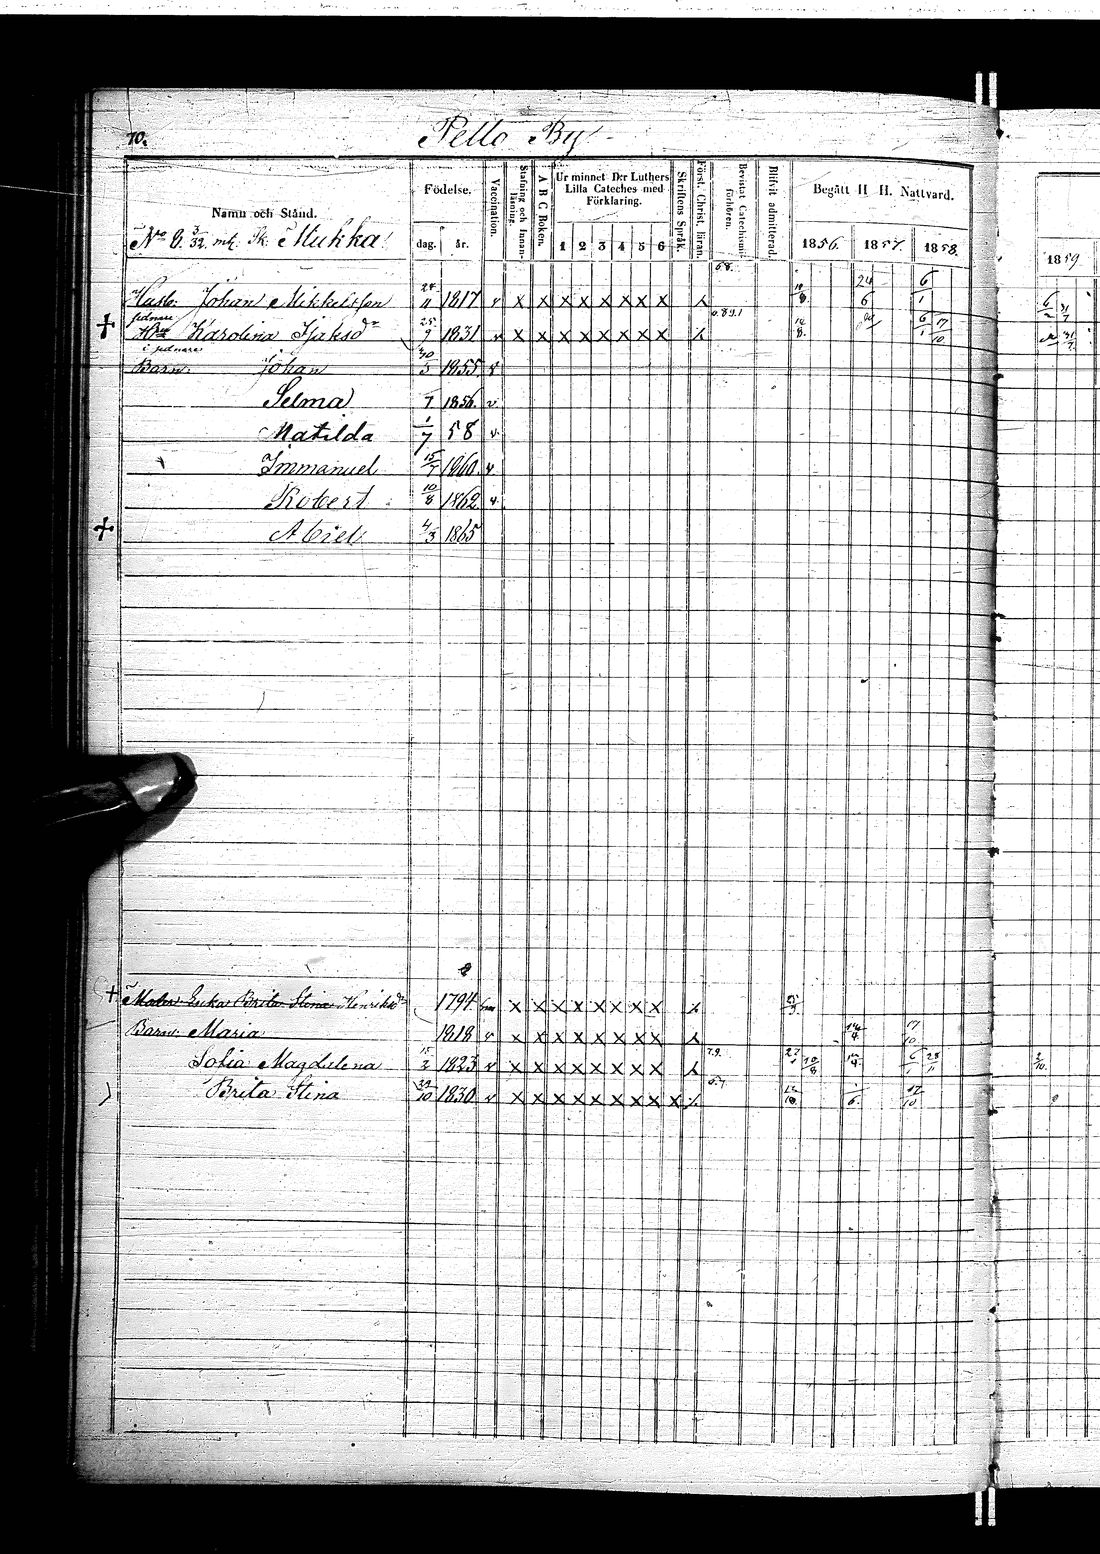 70. Pello By
Namn och Stånd. Födelse. Vaccination. Stafning och Innanläsning. A B C Boken. Ur minnet D:r Luthers Lilla Cateches med Förklaring. Skriftens Språk. Först. Christ. läran. Bevistat Catechismiförhören. Blifvit admitterad. Begått H. H. Nattvard.
No 6. 3/32 mtl. Sk: Mukka dag. år. 1 2 3 4 5 6 1856. 1857. 1858. 1859.
Johan Mikkelsson 24/11 1817 v x x x x x x x x 10/8 24/6 6/1
+ Karolina Isaksdr 25/9 1831 v x x x x x x x x 6/1 17/10
Barn: Johan 30/5 1855 v
Selma 7 1856. v
Matilda 1/7 58 v
Immanuel 15/7 1860. v
Robert 10/8 1862 v
+ Abiel 4/3 1865
+ Moder Enka Brita Stina Henriksdr 1794 x x x x x x x x
Barn: Maria 1818 v x x x x x x x x 17/10
Sofia Magdalena 1823 v x x x x x x x x 7.9. 10/8 6/1 28/11 2/10.
Brita Stina 1830 v x x x x x x x x x 1/6. 17/10